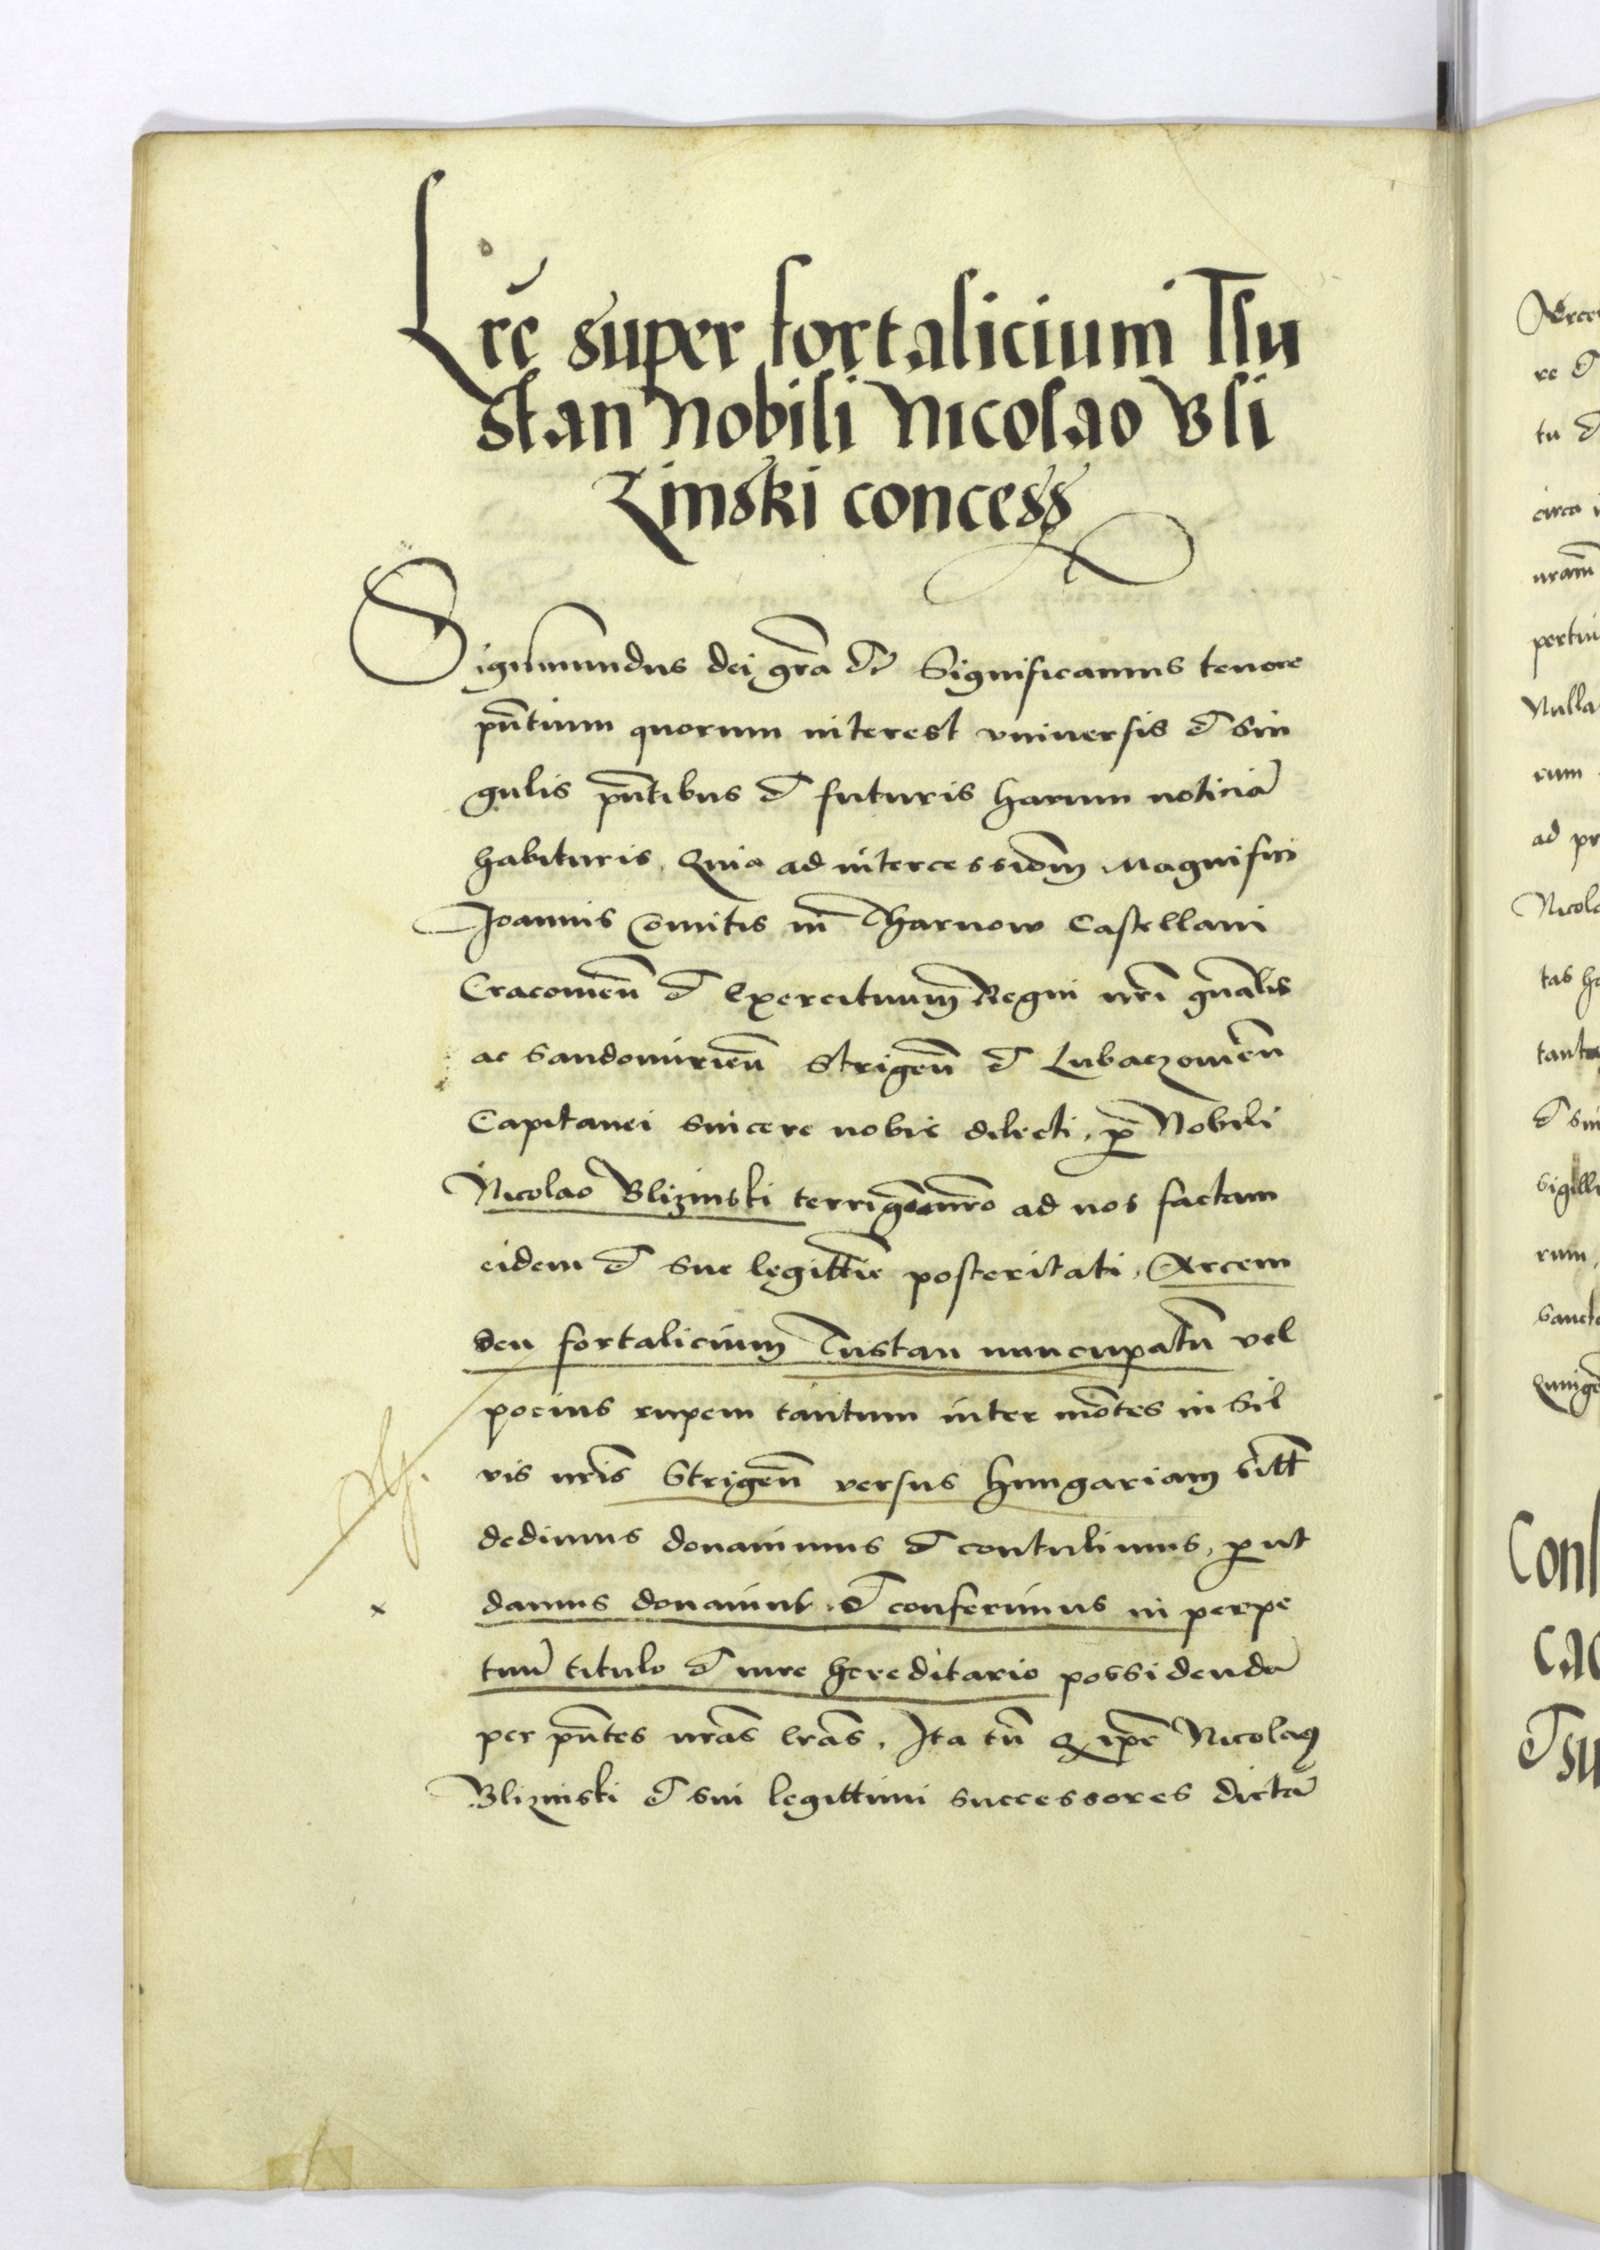 Lrē super fortalicium Tsu
stan Nobili Nicolao Bli
zinski concess
Sigismundus dei grā etc Significamus tenore
pñtium quorum interest vniversis et sin
gulis pñtibus et futuris harum noticiā
habituris. Quia ad intercessioēm Magnifici
Joannis Comitis in Tharnow Castellani
Cracovieñ et Exercituum Regni nrī gnālis
ac Sandomirieñ Strigeñ et Lubaczovieñ
Capitanei sincere nobis dilecti, p̄ Nobili
Nicolao Blizinski terrigena nrō ad nos factam
eidem et sue legittīe posteritati, Arcem
seu fortalicium Tustan nuncupatū vel
pocius rupem tantum inter mōtes in sil
vis nrīs Strigeñ versus Hungariam sitā
dedimus donavimus et contulimus, prout
damus donamus et conferimus in perpe
tuū titulo et iure hereditario possidendā
per pñtes nrās lrās. Ita tñ q ipē Nicolaus
Blizinski et sui legittimi successores dictā
Arce
re et
tu et
circa
nram
Nulla
cum
ad pr
Nicola
tas ha
et sin
sigilli
rum,
Conf
cac
Tsu